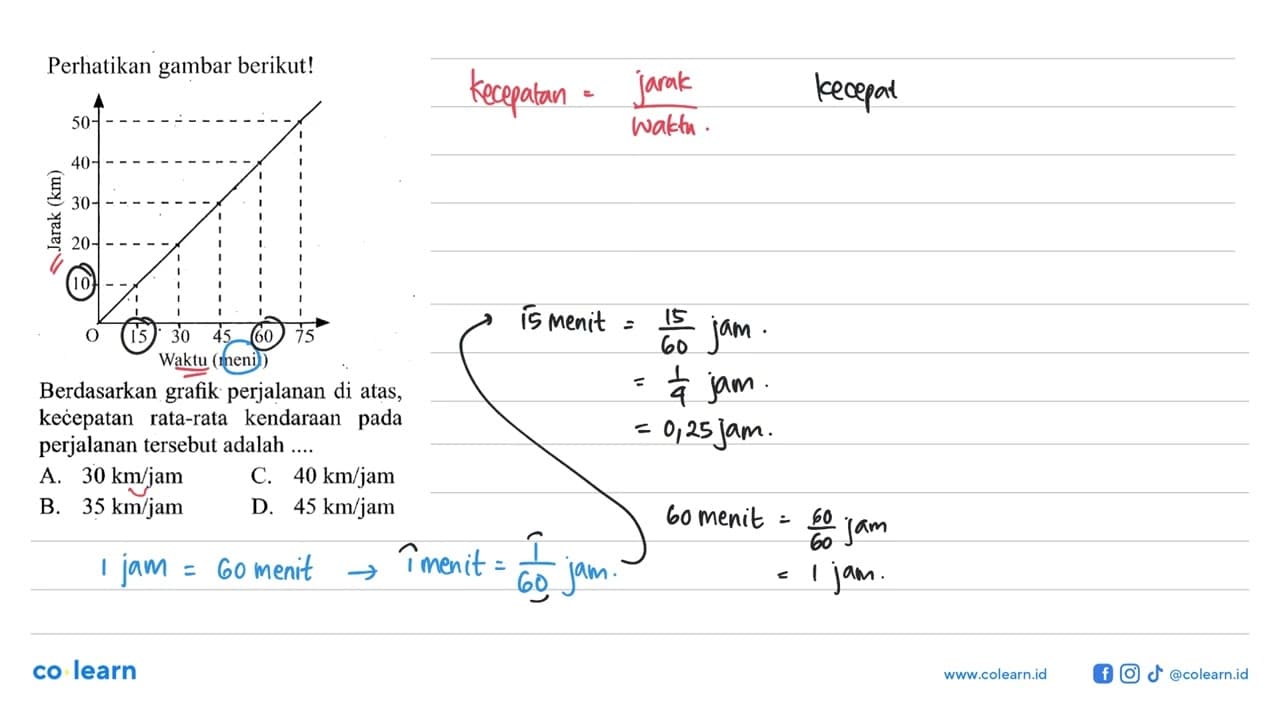 Perhatikan gambar berikut!
Jarak (km)
50
40
30
20
10
O 15 30 45 60 75
Waktu (menit)
Berdasarkan grafik perjalanan di atas,
kecepatan rata-rata kendaraan pada
perjalanan tersebut adalah ....
A. 30 km/jam C. 40 km/jam
B. 35 km/jam D. 45 km/jam
1 jam = 60 menit → 1 menit = 1/60 jam.
kecepatan = jarak/waktu.
kecepat
15 menit = 15/60 jam.
= 1/4 jam.
= 0,25 jam.
60 menit = 60/60 jam
= 1 jam.
co learn
www.colearn.id
@colearn.id